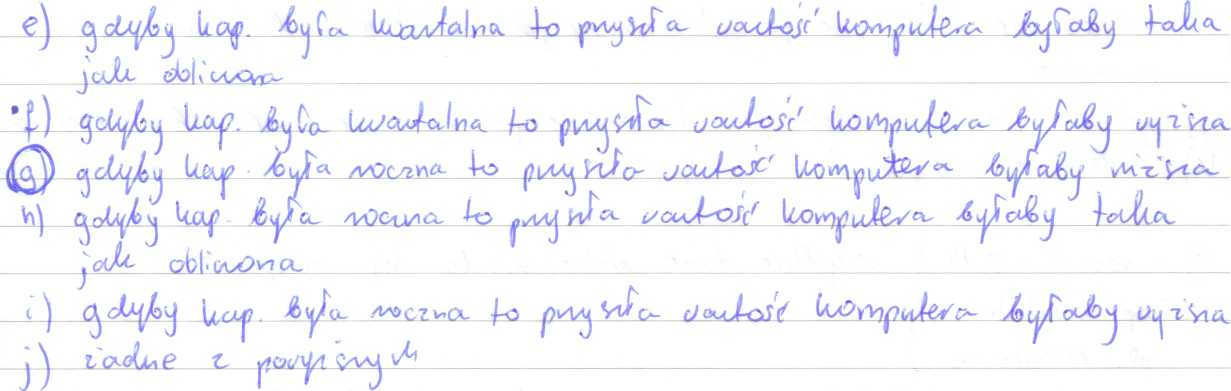 e) gdyby kap. była kwartalna to przyszła wartość komputera byłaby taka
jak obliczona
f) gdyby kap. była kwartalna to przyszła wartość komputera byłaby wyższa
g) gdyby kap. była roczna to przyszła wartość komputera byłaby niższa
h) gdyby kap. była roczna to przyszła wartość komputera byłaby taka
jak obliczona
i) gdyby kap. była roczna to przyszła wartość komputera byłaby wyższa
j) żadne z powyższych